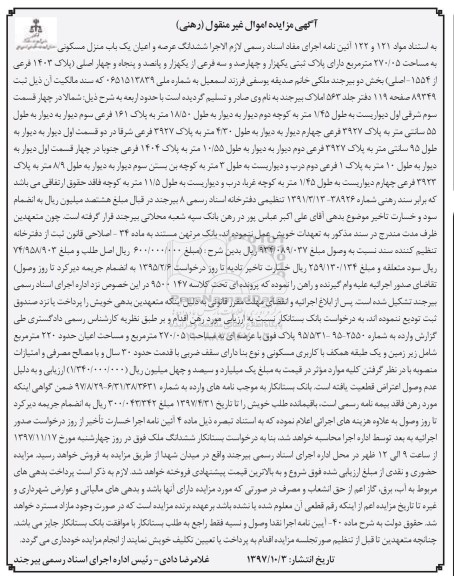 آگهی مزایده اموال غیر منقول (رهنی)
به استناد مواد ۱۲۱ و ۱۲۲ آئین نامه اجرای مفاد اسناد رسمی لازم الاجرا ششدانگ عرصه و اعیان یک باب منزل مسکونی
به مساحت ۲۷۰/۰۵ مترمربع دارای پلاک ثبتی یکهزار و چهارصد و سه فرعی از یکهزار و پانصد و پنجاه و چهار اصلی (پلاک ۱۴۰۳ فرعی
از ۱۵۵۴-اصلی) بخش دو بیرجند ملکی خانم صدیقه یوسفی فرزند اسمعیل به شماره ملی ۰۶۵۱۵۱۳۸۳۹ که سند مالکیت آن ذیل ثبت
۸۹۳۴۹ صفحه ۱۱۹ دفتر جلد ۵۶۳ املاک بیرجند به نام وی صادر و تسلیم گردیده است با حدود اربعه به شرح ذیل: شمالا در چهار قسمت
سوم شرقی اول دیواریست به طول ۱/۴۵ متر به کوچه دوم دیوار به دیوار به طول ۱۸/۵۰ متر به پلاک ۱۶۱ فرعی سوم دیوار به دیوار به طول
۵۵ سانتی متر به پلاک ۳۹۲۷ فرعی چهارم دیوار به دیوار به طول ۴/۳۰ متر به پلاک ۳۹۲۷ فرعی شرقا در دو قسمت اول دیوار به دیوار به
طول ۹۵ سانتی متر به پلاک ۳۹۲۷ فرعی دوم دیوار به دیوار به طول ۱۰/۵۵ متر به پلاک ۱۴۰۴ فرعی جنوبا در چهار قسمت اول دیوار به
دیوار به طول ۱۰ متر به پلاک ۱ فرعی دوم درب و دیواریست به طول ۳ متر به کوچه بن بستن سوم دیوار به دیوار به طول ۸/۹ متر به پلاک
۳۹۲۳ فرعی چهارم دیواریست به طول ۱/۴۵ متر به کوچه غربا، درب و دیواریست به طول ۱۱/۵ متر به کوچه فاقد حقوق ارتفاقی می باشد
که برابر سند رهنی شماره ۳۸۹۲۶-۱۳۹۱/۳/۱۳ تنظیمی دفترخانه اسناد رسمی ۸ بیرجند در قبال مبلغ هشتصد میلیون ریال به انضمام
سود و خسارت تاخیر موضوع بدهی آقای علی اکبر عباس پور در رهن بانک سپه شعبه محلاتی بیرجند قرار گرفته است. چون متعهدین
ظرف مدت مندرج در سند مذکور به تعهدات خویش عمل ننموده اند، بانک مرتهن مستند به ماده ۳۴ - اصلاحی قانون ثبت از دفترخانه
تنظیم کننده سند نسبت به وصول مبلغ ۹۳۴/۰۸۹/۰۳۷ ریال بدین شرح: (مبلغ ۶۰۰/۰۰۰/۰۰۰ ریال اصل طلب و مبلغ ۷۴/۹۵۸/۹۰۳
ریال سود متعلقه و مبلغ ۲۵۹/۱۳۰/۱۳۴ ریال خسارت تاخیر تادیه تا روز درخواست ۱۳۹۵/۲/۶ به انضمام جریمه دیرکرد تا روز وصول)
تقاضای صدور اجرائیه علیه وام گیرنده و راهن را نموده که پرونده ای تحت کلاسه ۹۵۰۰۱۴۷ در این خصوص نزد اداره اجرای اسناد رسمی
بیرجند تشکیل شده است. پس از ابلاغ اجرائیه و انقضای مهلت مقرر قانونی به دلیل اینکه متعهدین بدهی خویش را پرداخت یا نزد صندوق
ثبت تودیع ننموده اند، به درخواست بانک بستانکار نسبت به ارزیابی مورد رهن اقدام و بر طبق نظریه کارشناس رسمی دادگستری طی
گزارش وارده به شماره ۲۵۵۰-۹۵ ۹۵/۵/۳۱ پلاک فوق با عرصه ای به مساحت ۲۷۰/۰۵ مترمربع و مساحت اعیان حدود ۲۲۰ مترمربع
شامل زیر زمین و یک طبقه همکف با کاربری مسکونی و نوع بنا دارای سقف ضربی با قدمت حدود ۳۰ سال و با مصالح مصرفی و امتیازات
منصوبه با در نظر گرفتن کلیه موارد مؤثر در قیمت به مبلغ یک میلیارد و سیصد و چهل میلیون ریال (۱/۳۴۰/۰۰۰/۰۰۰) ارزیابی و به دلیل
عدم وصول اعتراض قطعیت یافته است. بانک بستانکار به موجب نامه های وارده به شماره ۶/۳۱/۳۸/۳۶۳۱-۹۷/۸/۲۹ ضمن گواهی اینکه
مورد رهن فاقد بیمه نامه رسمی است، باقیمانده طلب خویش را تا تاریخ ۱۳۹۷/۴/۳۱ مبلغ ۳۰۰/۰۴۳/۳۴۲ ریال به انضمام جریمه دیرکرد
تا روز وصول به علاوه هزینه های اجرائی اعلام نموده که به استناد تبصره ذیل ماده ۴ آئین نامه اجرا خسارت تأخیر از روز درخواست صدور
اجرائیه به بعد توسط اداره اجرا محاسبه خواهد شد، بنا به درخواست بستانکار ششدانگ ملک فوق در روز چهارشنبه مورخ ۱۳۹۷/۱۱/۱۷
از ساعت ۹ الی ۱۲ ظهر در محل اداره اجرای اسناد رسمی بیرجند واقع در میدان شهدا از طریق مزایده به فروش خواهد رسید. مزایده
حضوری و نقدی از مبلغ ارزیابی شده فوق شروع و به بالاترین قیمت پیشنهادی فروخته خواهد شد. لازم به ذکر است پرداخت بدهی های
مربوط به آب، برق، گاز اعم از حق انشعاب و مصرف در صورتی که مورد مزایده دارای آنها باشد و بدهی های مالیاتی و عوارض شهرداری و
غیره تا تاریخ مزایده اعم از اینکه رقم قطعی آن معلوم شده یا نشده باشد برعهده برنده مزایده است که در صورت وجود مازاد مسترد خواهد
شد. حقوق دولت به شرح ماده ۴۰- آیین نامه اجرا نقدا وصول و نسیه فقط راجع به طلب بستانکار با موافقت بانک بستانکار جایز می باشد.
چنانچه متعهدین تا قبل از تنظیم صورتجلسه مزایده اقدام به پرداخت یا تعیین تکلیف خویش نمایند از انجام مزایده خودداری می گردد.
تاریخ انتشار: ۱۳۹۷/۱۰/۳ غلامرضا دادی-رئیس اداره اجرای اسناد رسمی بیرجند